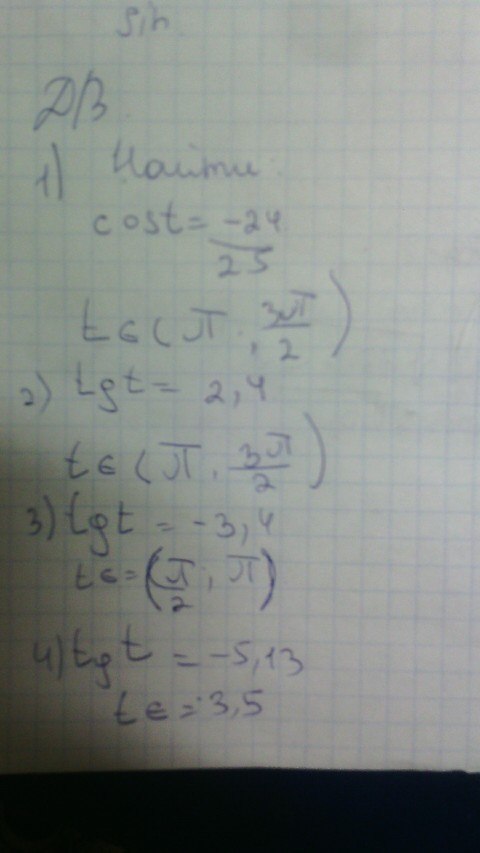 sin
ДЗ
1) Найти:
cost = -24/25
t ∈ (π; 3π/2)
2) tgt = 2,4
t ∈ (π; 3π/2)
3) tgt = -3,4
t ∈ = (π/2; π)
4) tgt = -5,13
t ∈ = 3,5